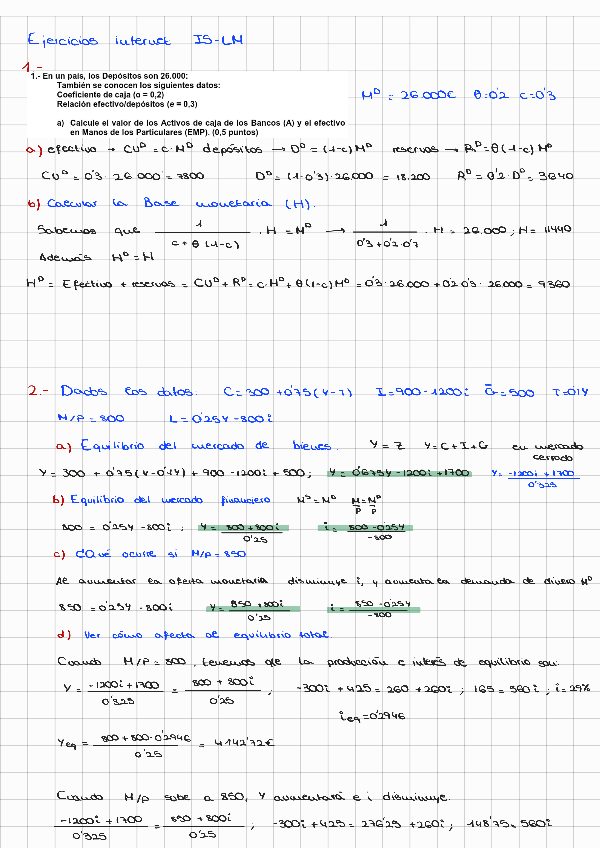 Ejercicios interuct IS-LM
1.-
1.- En un país, los Depósitos son 26.000:
También se conocen los siguientes datos:
Coeficiente de caja (α = 0,2)
Relación efectivo/depósitos (e = 0,3)
M^D = 26.000€ θ=0'2 c=0'3
a) Calcule el valor de los Activos de caja de los Bancos (A) y el efectivo
en Manos de los Particulares (EMP). (0,5 puntos)
a) efectivo → CU^D = c·M^D depósitos → D^D = (1-c)M^D reservas → R^D = θ(1-c) M^D
CU^D = 0'3 · 26.000 = 7800 D^D = (1-0'3)·26.000 = 18.200 R^D = 0'2·D^D = 3640
b) Calcular la Base monetaria (H).
Sabemos que 1/(c + θ(1-c)) · H = M^D → 1/(0'3+0'2·0'7) · H = 26.000; H = 11440
Además H^D = H
H^D = Efectivo + reservas = CU^D + R^D = c·M^D + θ(1-c)M^D = 0'3·26.000 + 0'2·0'3·26.000 = 9360
2.- Dados los datos: C = 300 + 0'75(Y-T) I = 900-1200i G̅ = 500 T = 0'1Y
M/P = 800 L = 0'25Y - 800i
a) Equilibrio del mercado de bienes. Y = Z Y = C+I+G en mercado
cerrado
Y = 300 + 0'75(Y-0'1Y) + 900 - 1200i + 500; Y = 0'675Y - 1200i + 1700 Y = (-1200i + 1700)/0'325
b) Equilibrio del mercado financiero M^S = M^D M/P = M^D/P
800 = 0'25Y - 800i; Y = (800 + 800i)/0'25 i = (800 - 0'25Y)/-800
c) ¿Qué ocurre si M/P = 850
Al aumentar la oferta monetaria disminuye i, y aumenta la demanda de dinero M^D
850 = 0'25Y - 800i Y = (850 + 800i)/0'25 i = (850 - 0'25Y)/-800
d) Ver cómo afecta al equilibrio total
Cuando M/P = 800, tenemos que la producción e interés de equilibrio son:
Y = (-1200i + 1700)/0'325 = (800 + 800i)/0'25; -300i + 425 = 260 + 260i; 165 = 560i; i = 29%
i_eq = 0'2946
Y_eq = (800 + 800·0'2946)/0'25 = 4.142'72€
Cuando M/P sube a 850, Y aumentará e i disminuye.
(-1200i + 1700)/0'325 = (850 + 800i)/0'25; -300i + 425 = 276'25 + 260i; 148'75 = 560i